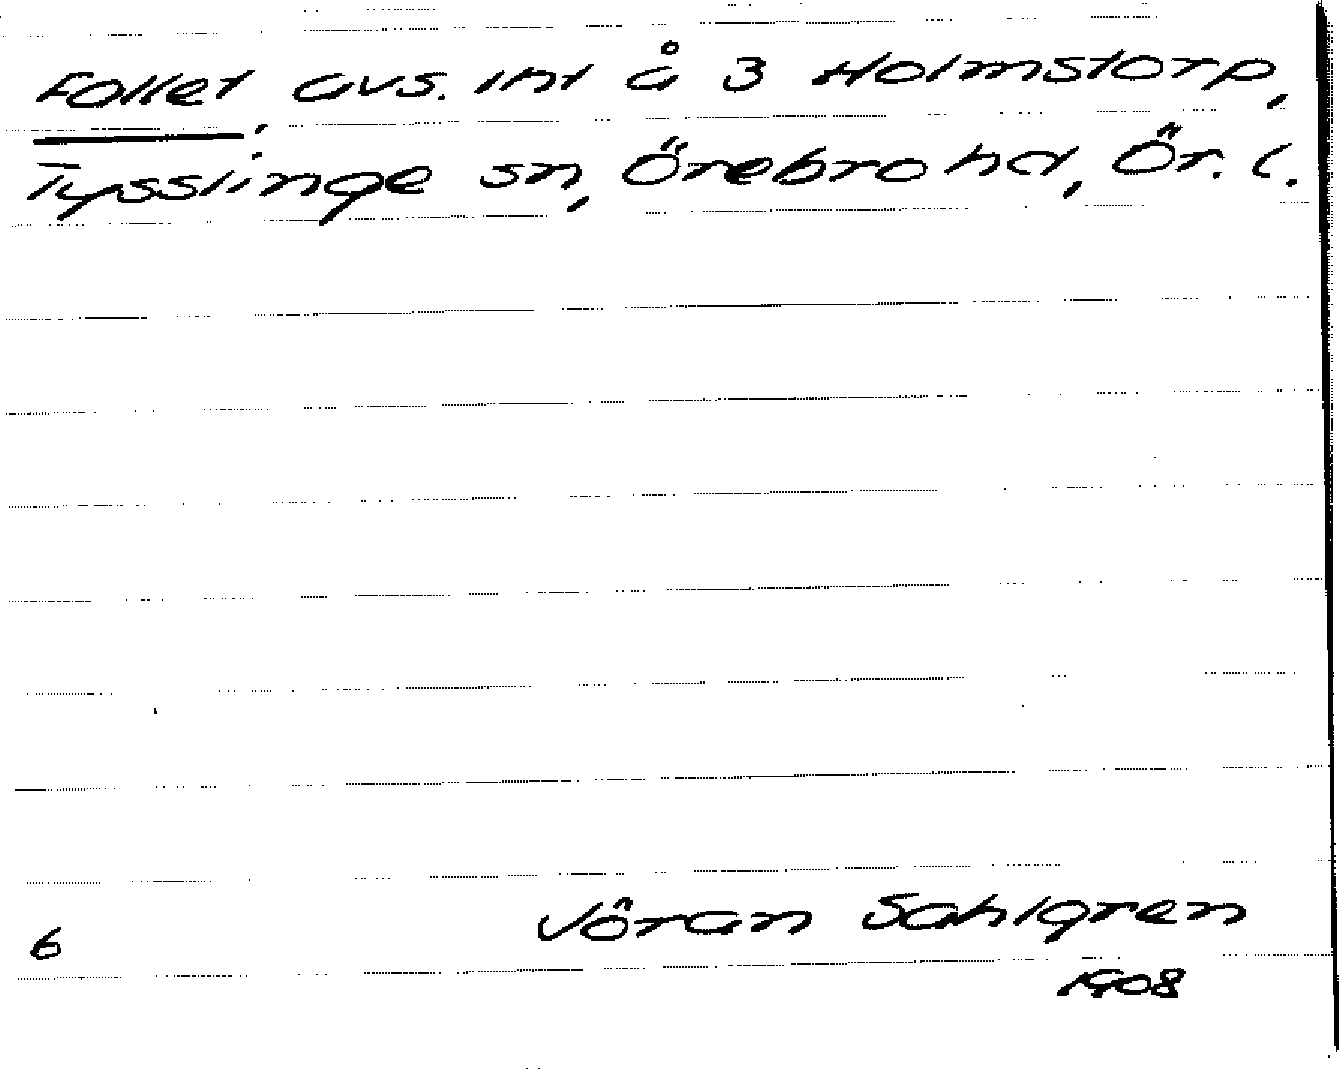 Follet, avs. int å 3 Holmstorp,
Tysslinge sn, Örebro hd, Ör. l.
Jöran Sahlgren
6
1908